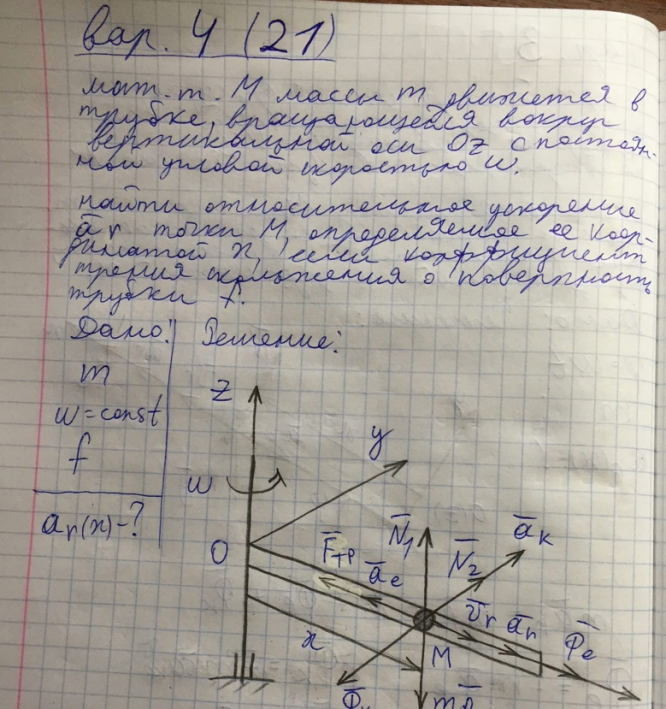 вар. 4 (21)
мат. т. М массы m движется в
трубке, вращающейся вокруг
вертикальной оси Oz с постоян-
ной угловой скоростью ω.
найти относительное ускорение
ā_r точки М, определяемое ее коор-
динатой x, если коэффициент
трения скольжения о поверхность
трубки f.
Дано: Решение:
m
ω = const
f
a_r(x) - ?
z
y
ω
O
F̄тр
ā_e
N̄₁
N̄₂
ā_к
v̄_r
ā_r
Φ̄_e
x
M
Φ̄